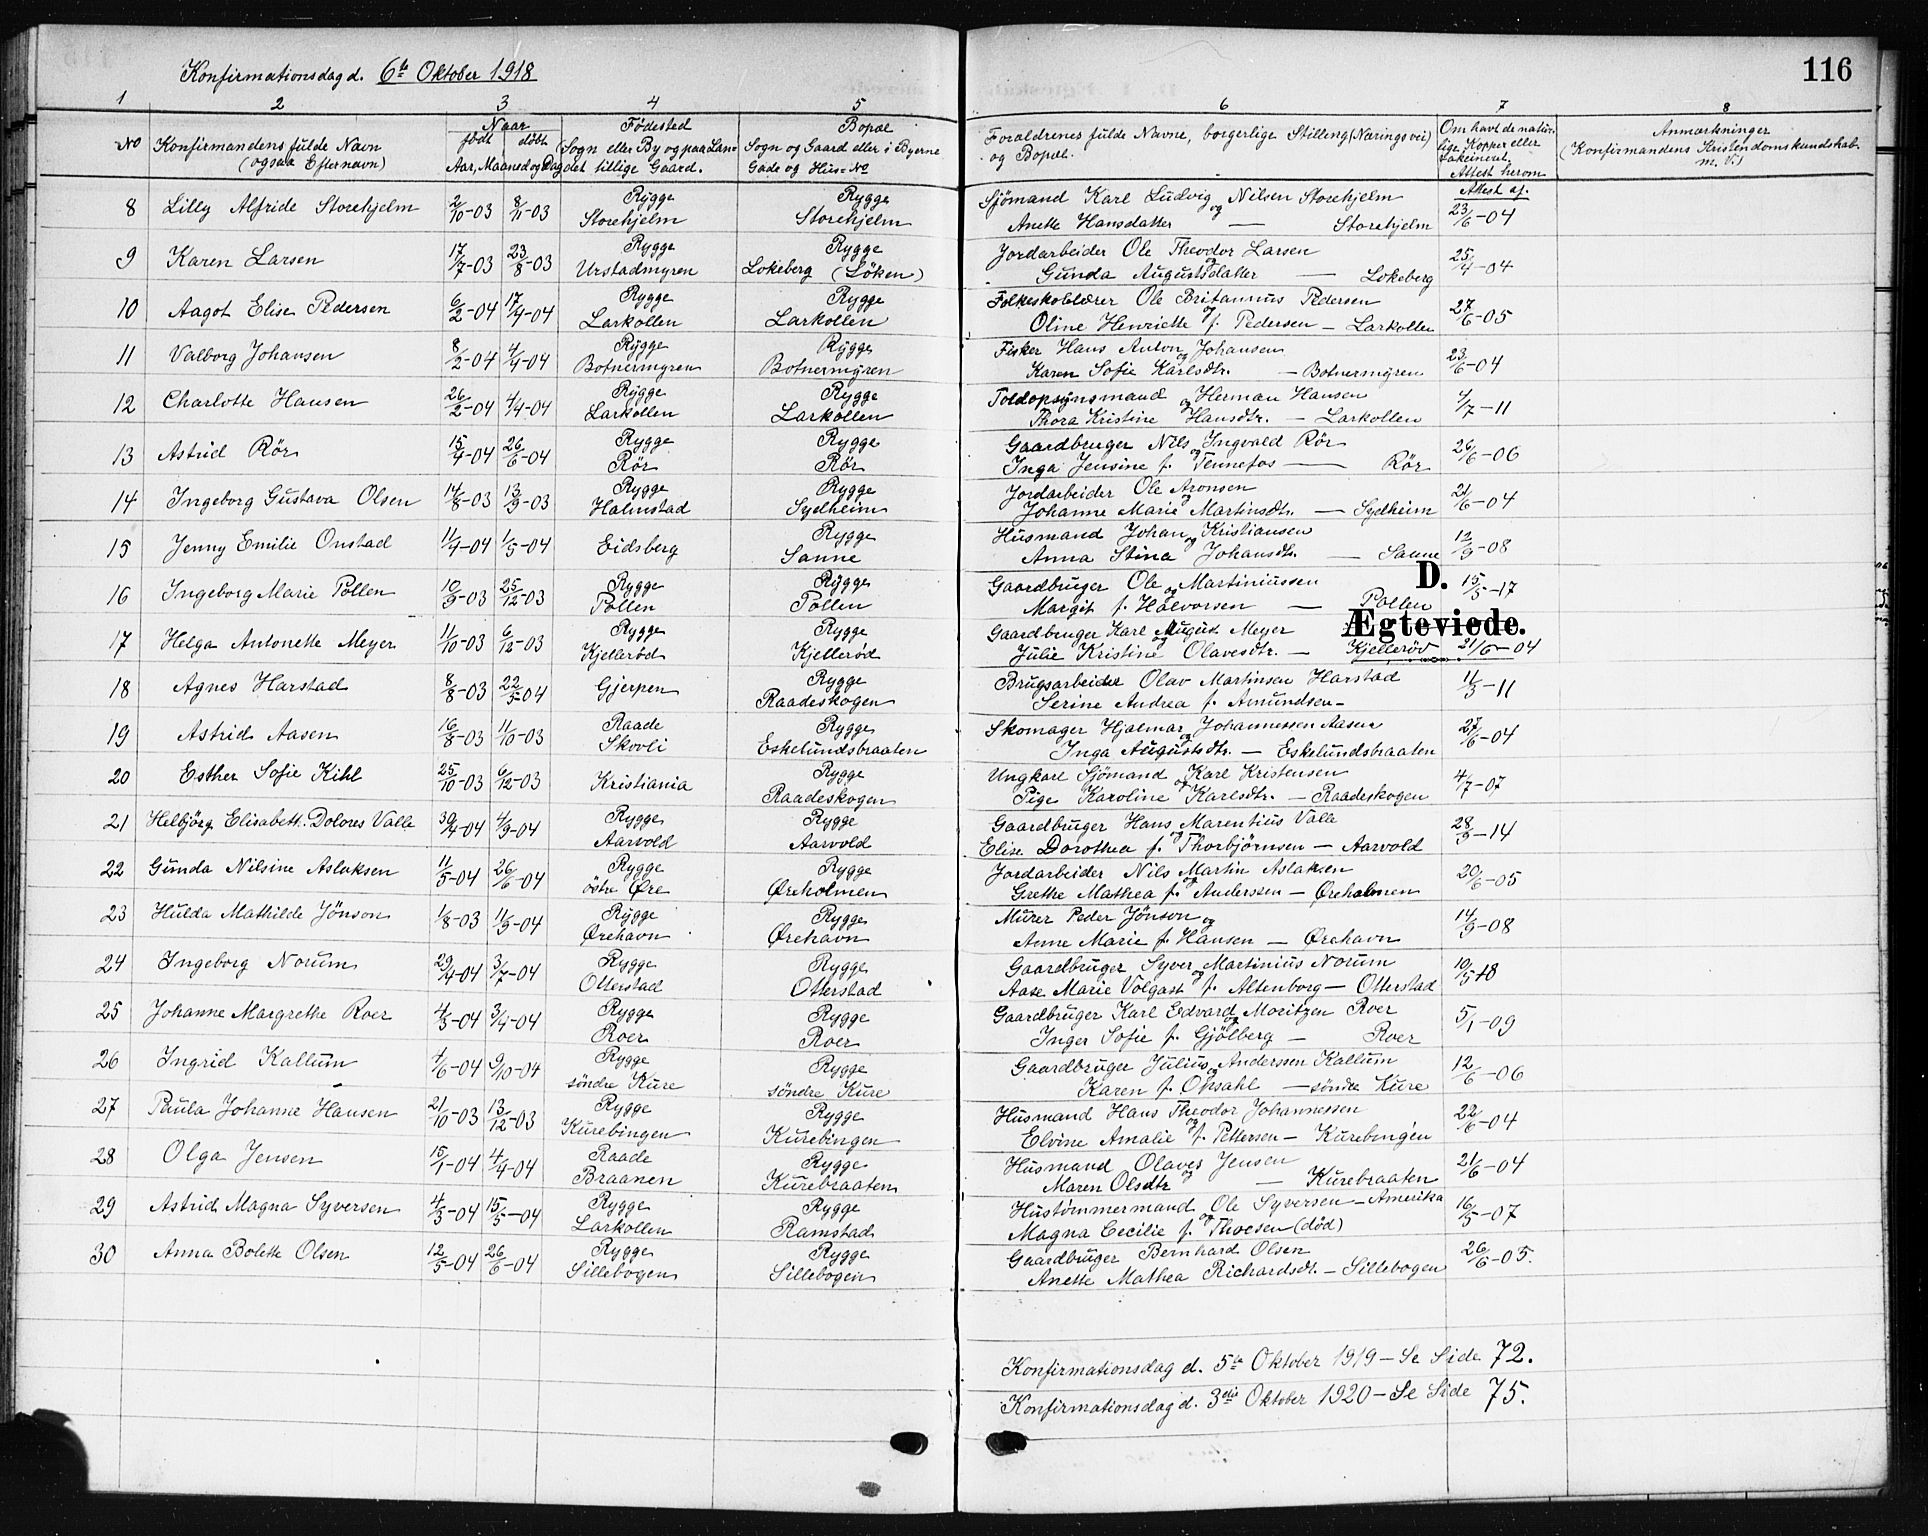 116
Konfirmationsdag d. 6te Oktober 1918
1 2 3 4 5 6 7 8
No Konfirmandens fulde Navn (ogsaa Efternavn) Naar født døbt Aar, Maaned og Dag Fødested (Sogn eller By og paa Landet tillige Gaard. Bopæl Sogn og Gaard eller i Byerne Gade og Hus-No Forældrenes fulde Navne, borgerlige Stilling (Næringsvei) og Bopæl. Om havt de naturlige Kopper eller vakcineret. Attest herom Anmærkninger (Konfirmandens Kristendomskundskab m. V.)
Attest af.
8 Lilly Alfride Storehjelm 2/10-03 8/11-03 Rygge Storehjelm Rygge Storehjelm Sjömand Karl Ludvig Nilsen Storehjelm og Anette Hansdatter — Storehjelm 23/6-04
9 Karen Larsen 17/7-03 23/8-03 Rygge Urstadmyren Rygge Lokeberg (Löken) Jordarbeider Ole Theodor Larsen og Gunda Augustsdatter — Lokeberg 25/4-04
10 Aagot Elise Pedersen 6/2-04 17/4-04 Rygge Larkollen Rygge Larkollen Folkeskolelærer Ole Britannus Pedersen og Oline Henriette f. Pedersen — Larkollen 27/6-05
11 Valborg Johansen 8/2-04 4/4-04 Rygge Botnermyren Rygge Botnermyren Fisker Hans Anton Johansen og Karen Sofie Karlsdtr. — Botnermyren 23/6-04
12 Charlotte Hansen 26/2-04 4/4-04 Rygge Larkollen Rygge Larkollen Toldopsynsmand Herman Hansen og Thora Kristine Hansdtr. — Larkollen 4/7-11
13 Astrid Rör 15/4-04 26/6-04 Rygge Rör Rygge Rör Gaardbruger Nils Ingvald Rör og Inga Jensine f. Tennefos — Rör 26/6-06
14 Ingeborg Gustava Olsen 14/8-03 13/9-03 Rygge Halmstad Rygge Sydheim Jordarbeider Ole Aronsen og Johanne Marie Martinsdtr. — Sydheim 21/6-04
15 Jenny Emilie Onstad 11/4-04 1/5-04 Eidsberg Rygge Sanne Husmand Johan Kristiansen og Anna Stina Johansdtr. — Sanne 12/9-08
16 Ingeborg Marie Pollen 10/9-03 25/12-03 Rygge Pollen Rygge Pollen Gaardbruger Ole Martiniussen og Margit f. Halvorsen — Pollen 15/5-17
D.
Ægteviede.
17 Helga Antonette Meyer 11/10-03 6/12-03 Rygge Kjellerød Rygge Kjellerød Gaardbruger Karl August Meyer og Julie Kristine Olavesdtr. — Kjellerød 21/6-04
18 Agnes Harstad 8/8-03 22/5-04 Gjerpen Rygge Raadeskogen Brugsarbeider Olav Martinsen Harstad Serine Andrea f. Amundsen — 11/3-11
19 Astrid Aasen 16/8-03 11/10-03 Raade Skovli Rygge Eskelundsbraaten Skomager Hjalmar Johannessen Aasen og Inga Augustsdtr. — Eskelundsbraaten 27/6-04
20 Esther Sofie Kihl 25/10-03 6/12-03 Kristiania Rygge Raadeskogen Ungkarl Sjömand Karl Kristensen og Pige Karoline Karlsdtr. — Raadeskogen 4/7-07
21 Helbjörg Elisabett. Dolores Valle 30/4-04 4/9-04 Rygge Aarvold Rygge Aarvold Gaardbruger Hans Marentius Valle og Elise Dorothea f. Thorbjörnsen — Aarvold 28/9-14
22 Gunda Nilsine Aslaksen 11/5-04 26/6-04 Rygge östre Øre Rygge Øreholmen Jordarbeider Nils Martin Aslaksen og Grethe Mathea f. Anderssen — Øreholmen 20/6-05
23 Hulda Mathilde Jönson 1/8-03 11/9-04 Rygge Ørehavn Rygge Ørehavn Murer Peder Jönson og Anne Marie f. Hansen — Ørehavn 14/9-08
24 Ingeborg Norum 29/4-04 3/7-04 Rygge Otterstad Rygge Otterstad Gaardbruger Syver Martinius Norum og Aase Marie Volgast f. Altenborg — Otterstad 10/5-18
25 Johanne Margrethe Roer 4/3-04 3/4-04 Rygge Roer Rygge Roer Gaardbruger Karl Edvard Moritzen Roer og Inger Sofie f. Gjölberg — Roer 5/1-09
26 Ingrid Kallum 4/6-04 9/10-04 Rygge söndre Kure Rygge söndre Kure Gaardbruger Julius Anderssen Kallum og Karen f. Opsahl — söndre Kure 12/6-06
27 Paula Johanne Hansen 21/10-03 13/12-03 Rygge Kurebingen Rygge Kurebingen Husmand Hans Theodor Johannessen og Elvine Amalie f. Pettersen — Kurebingen 22/6-04
28 Olga Jensen 15/1-04 4/4-04 Raade Braanen Rygge Kurebraaten Husmand Olaves Jensen og Maren Olsdtr — Kurebraaten 21/6-04
29 Astrid Magna Syversen 4/3-04 15/5-04 Rygge Larkollen Rygge Ramstad Hustømmermand Ole Syversen — Amerika og Magna Cecilie f. Thoesen (død) 16/5-07
30 Anna Bolette Olsen 12/5-04 26/6-04 Rygge Sillebogen Rygge Sillebogen Gaardbruger Bernhard Olsen Anette Mathea Richardsdt. — Sillebogen 26/6-05.
Konfirmationsdag d. 5te Oktober 1919 — Se Side 72.
Konfirmationsdag d. 3die Oktober 1920 — Se Side 75.